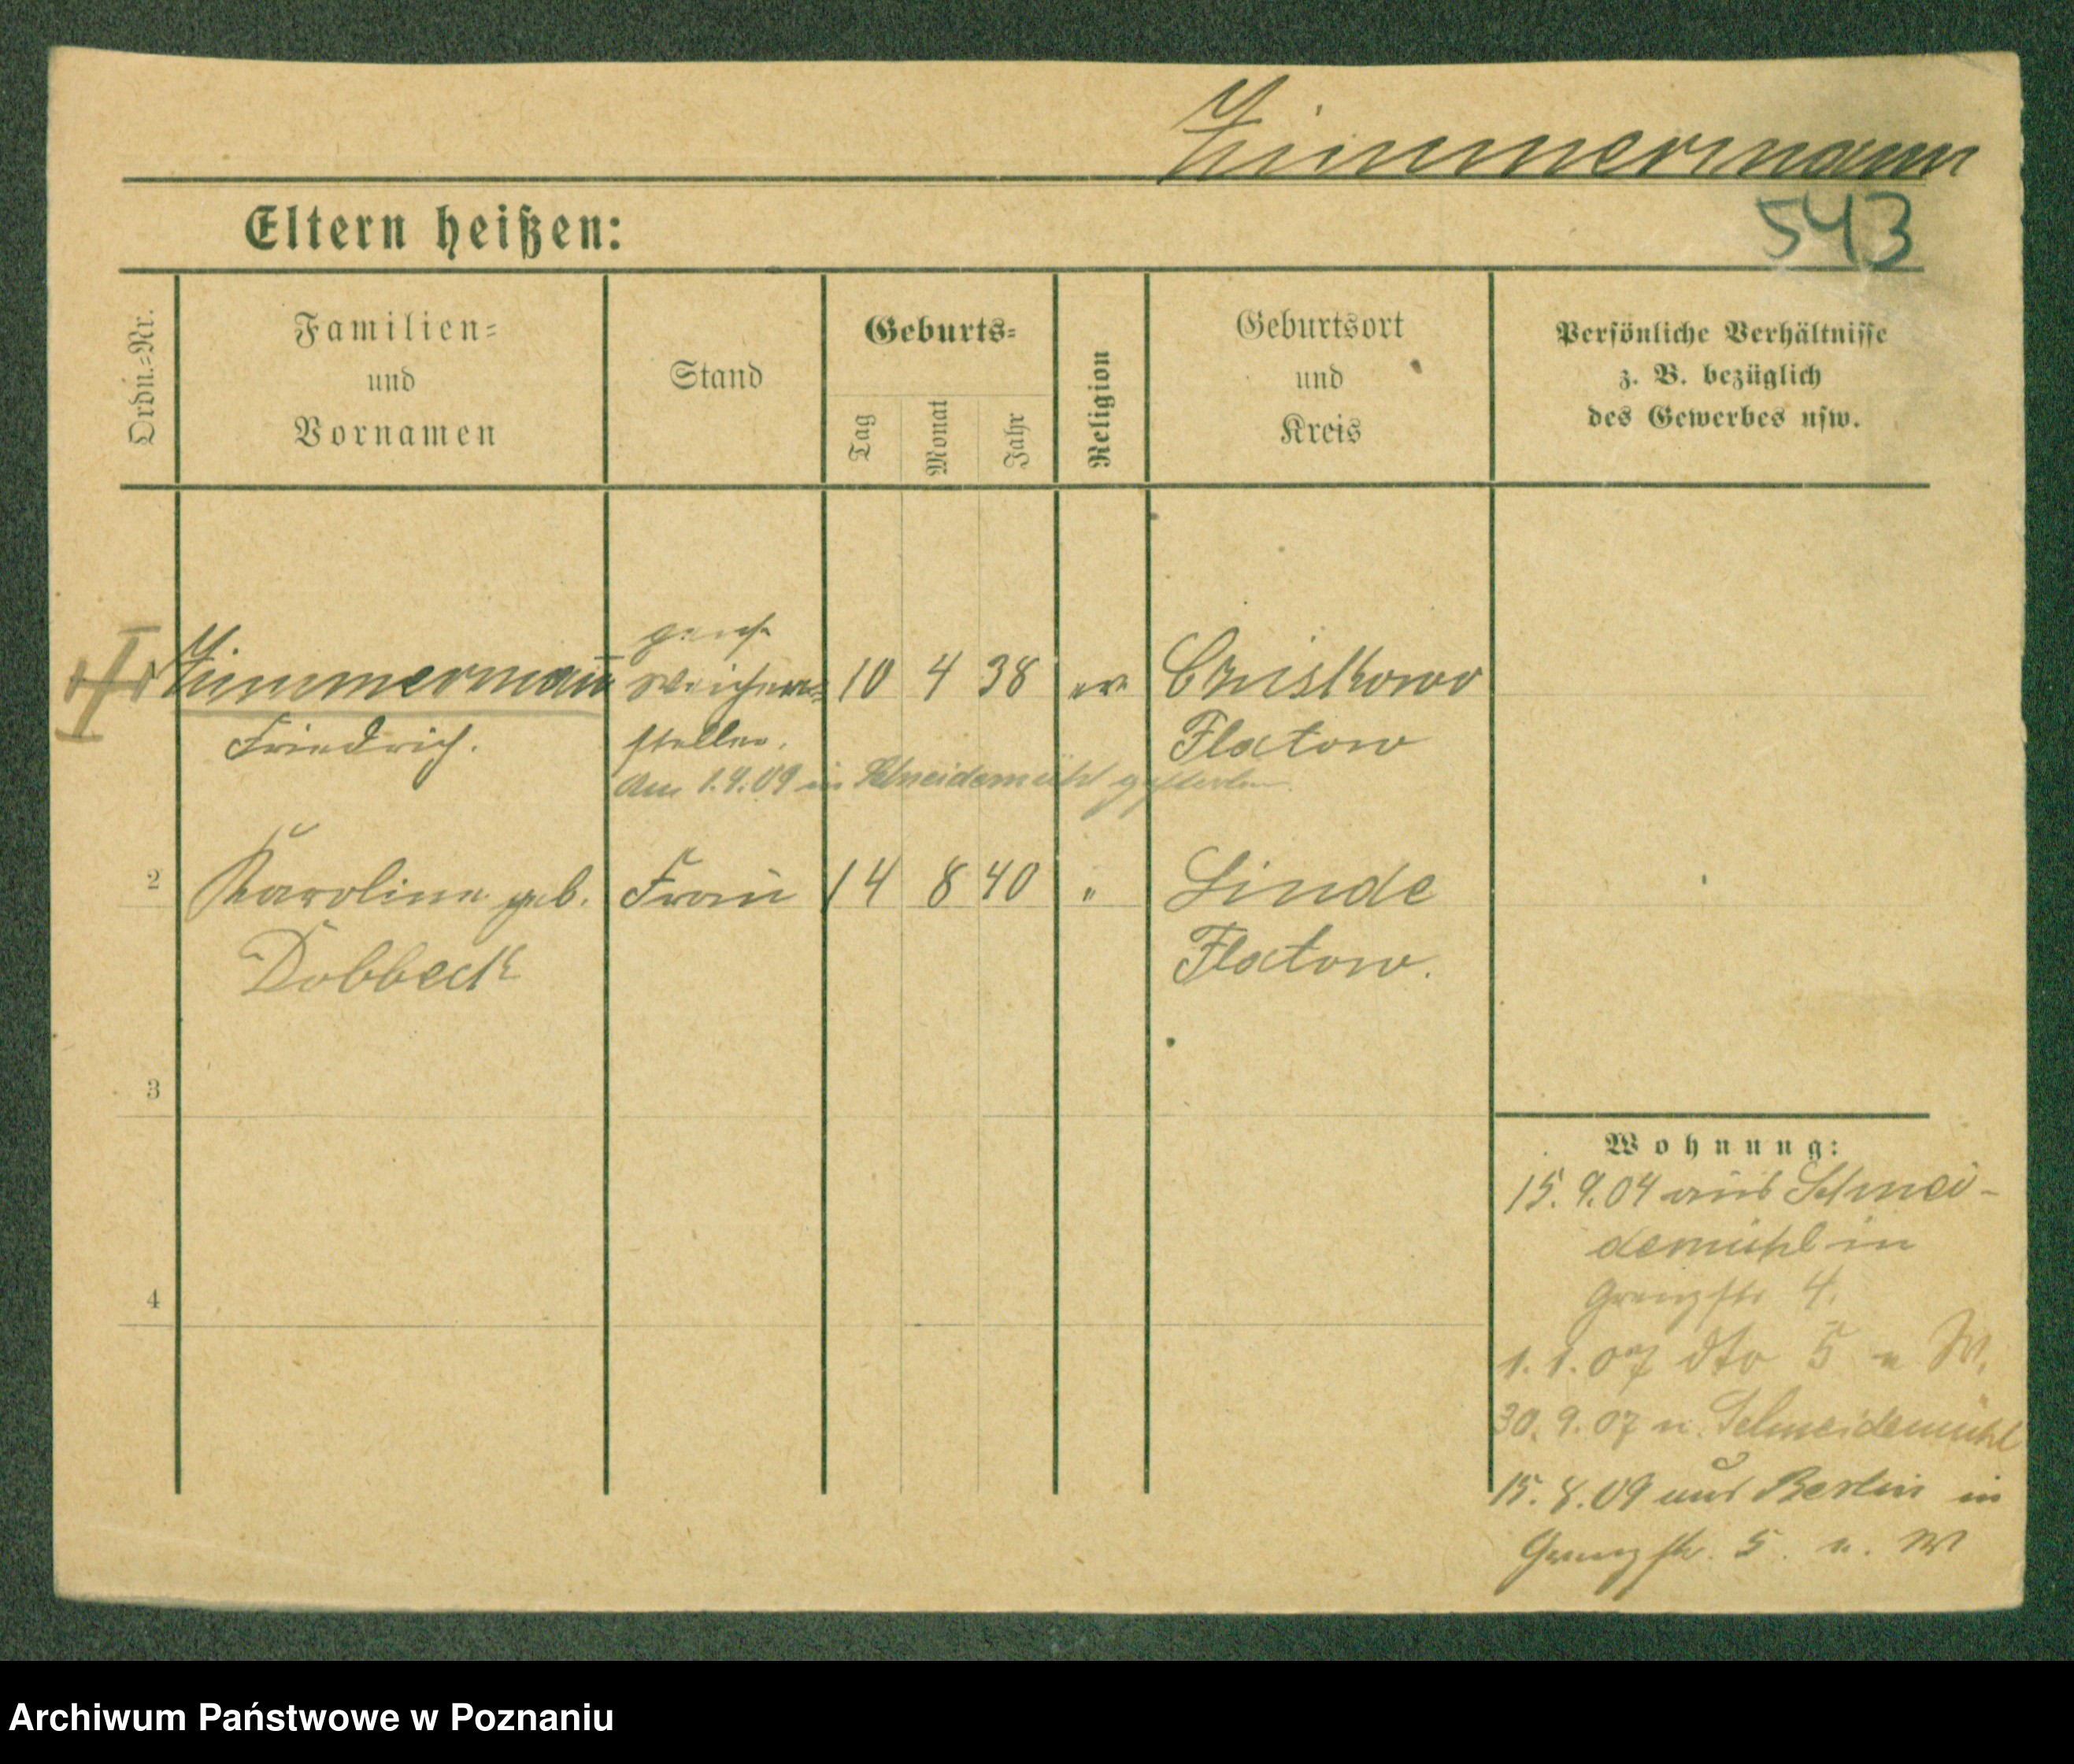 Zimmermann
543
Eltern heißen:
Ordn.=Nr.
Familien=
und
Vornamen
Stand
Geburts=
Tag
Monat
Jahr
Religion
Geburtsort
und
Kreis
Persönliche Verhältnisse
z. B. bezüglich
des Gewerbes usw.
Zimmermann
Friedrich.
Weichen=
steller.
10 4 38
ev
Flatow
Am 1.4.09 in Schneidemühl gestorben
2
Karoline geb.
Dobbeck
Frau
14 8 40
"
Linde
Flatow.
3
4
Wohnung:
15. 9. 04 aus Schnei-
demühl in
Grenzstr 4.
1. 1. 07 dto 5 W.
30. 9. 07 n. Schneidemühl
15. 8. 09 aus Berlin in
Grenzstr. 5. W
Archiwum Państwowe w Poznaniu